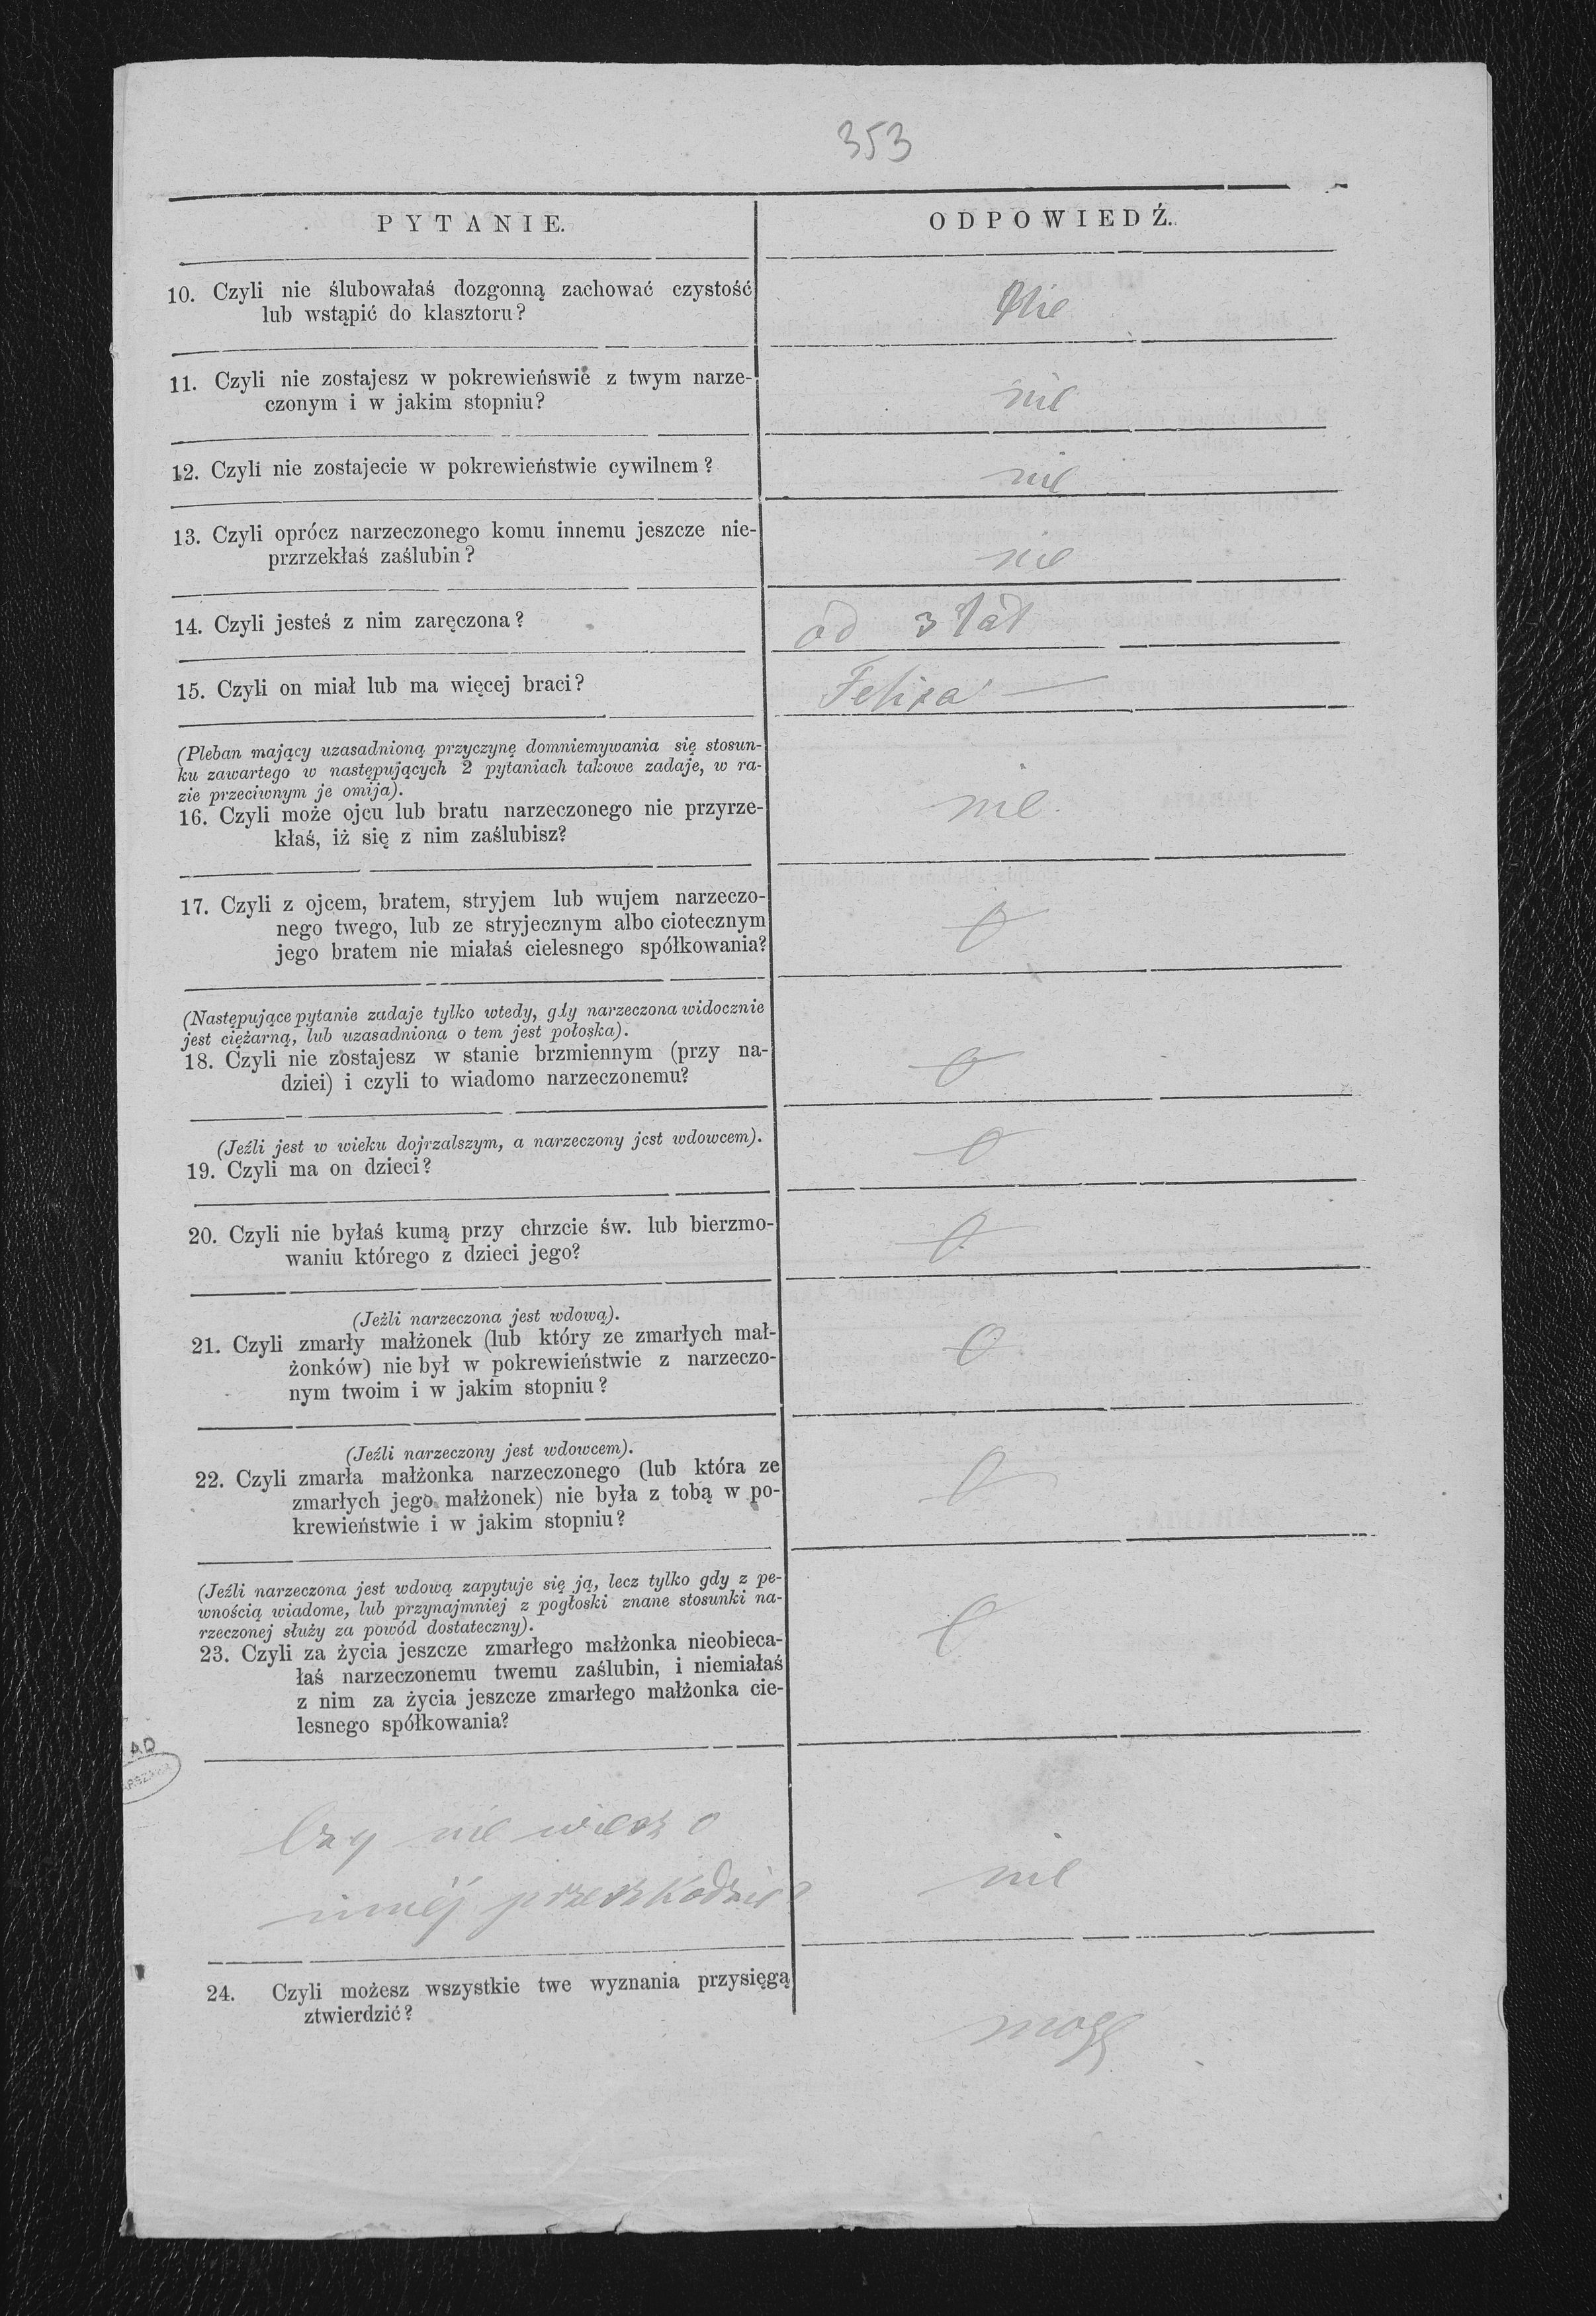 353
PYTANIE.
ODPOWIEDŹ.
10. Czyli nie ślubowałaś dozgonną zachować czystość
lub wstąpić do klasztoru?
Nie
11. Czyli nie zostajesz w pokrewieńswie z twym narze-
czonym i w jakim stopniu?
nie
12. Czyli nie zostajecie w pokrewieństwie cywilnem?
nie
13. Czyli oprócz narzeczonego komu innemu jeszcze nie-
przrzekłaś zaślubin?
nie
14. Czyli jesteś z nim zaręczona?
od 3 lat
15. Czyli on miał lub ma więcej braci?
Felixa —
(Pleban mający uzasadnioną przyczynę domniemywania się stosun-
ku zawartego w następujących 2 pytaniach takowe zadaje, w ra-
zie przeciwnym je omija).
16. Czyli może ojcu lub bratu narzeczonego nie przyrze-
kłaś, iż się z nim zaślubisz?
nie.
17. Czyli z ojcem, bratem, stryjem lub wujem narzeczo-
nego twego, lub ze stryjecznym albo ciotecznym
jego bratem nie miałaś cielesnego spółkowania?
0
(Następujące pytanie zadaje tylko wtedy, gdy narzeczona widocznie
jest ciężarną, lub uzasadniona o tem jest połoska).
18. Czyli nie zostajesz w stanie brzmiennym (przy na-
dziei) i czyli to wiadomo narzeczonemu?
0
(Jeźli jest w wieku dojrzalszym, a narzeczony jest wdowcem).
19. Czyli ma on dzieci?
0
20. Czyli nie byłaś kumą przy chrzcie św. lub bierzmo-
waniu którego z dzieci jego?
0
(Jeźli narzeczona jest wdową).
21. Czyli zmarły małżonek (lub który ze zmarłych mał-
żonków) nie był w pokrewieństwie z narzeczo-
nym twoim i w jakim stopniu?
0
(Jeźli narzeczony jest wdowcem).
22. Czyli zmarła małżonka narzeczonego (lub która ze
zmarłych jego małżonek) nie była z tobą w po-
krewieństwie i w jakim stopniu?
0
(Jeźli narzeczona jest wdową zapytuje się ją, lecz tylko gdy z pe-
wnością wiadome, lub przynajmniej z pogłoski znane stosunki na-
rzeczonej służy za powód dostateczny).
23. Czyli za życia jeszcze zmarłego małżonka nieobieca-
łaś narzeczonemu twemu zaślubin, i niemiałaś
z nim za życia jeszcze zmarłego małżonka cie-
lesnego spółkowania?
0
AD
Czy nie wiesz o
innéj przeszkodzie?
nie
24. Czyli możesz wszystkie twe wyznania przysięgą
ztwierdzić?
mogę